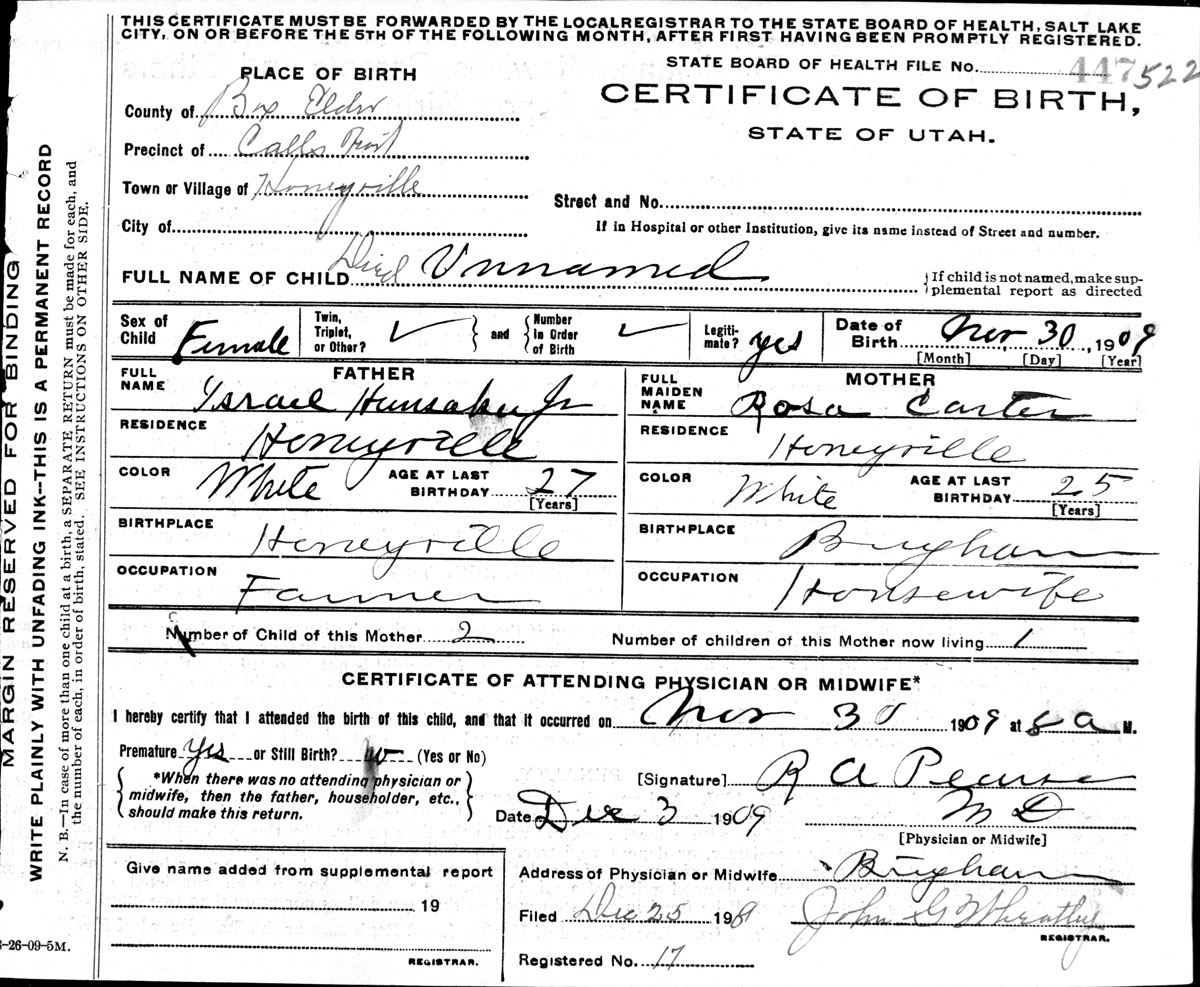 THIS CERTIFICATE MUST BE FORWARDED BY THE LOCAL REGISTRAR TO THE STATE BOARD OF HEALTH, SALT LAKE
CITY, ON OR BEFORE THE 5TH OF THE FOLLOWING MONTH, AFTER FIRST HAVING BEEN PROMPTLY REGISTERED.
PLACE OF BIRTH
STATE BOARD OF HEALTH FILE No. 447 522
County of Box Elder
CERTIFICATE OF BIRTH,
STATE OF UTAH.
Precinct of Calls Fort
Town or Village of Honeyville
Street and No.
City of
If in Hospital or other Institution, give its name instead of Street and number.
FULL NAME OF CHILD Died Unnamed
{If child is not named, make sup-
plemental report as directed
Sex of Child Female
Twin, Triplet, or Other? ✓ } and { Number In Order of Birth ✓
Legiti-mate? yes
Date of Birth Nov 30, 1909
[Month] [Day] [Year]
FATHER
FULL NAME Israel Hunsaker Jr
RESIDENCE Honeyville
COLOR White AGE AT LAST BIRTHDAY 27
[Years]
BIRTHPLACE Honeyville
OCCUPATION Farmer
MOTHER
FULL MAIDEN NAME Rosa Carter
RESIDENCE Honeyville
COLOR White AGE AT LAST BIRTHDAY 25
[Years]
BIRTHPLACE Brigham
OCCUPATION Housewife
Number of Child of this Mother 2 Number of children of this Mother now living 1
CERTIFICATE OF ATTENDING PHYSICIAN OR MIDWIFE*
I hereby certify that I attended the birth of this child, and that it occurred on Nov 30 1909 at 8 a M.
Premature Yes or Still Birth? no (Yes or No)
{ *When there was no attending physician or
midwife, then the father, householder, etc.,
should make this return. }
[Signature] R A Pearse
Date Dec 3 1909 M D
[Physician or Midwife]
Give name added from supplemental report
19
REGISTRAR.
Address of Physician or Midwife Brigham
Filed Dec 25 1909 John G Wheatley
REGISTRAR.
Registered No. 17
-26-09-5M.
MARGIN RESERVED FOR BINDING
WRITE PLAINLY WITH UNFADING INK--THIS IS A PERMANENT RECORD
N. B.—In case of more than one child at a birth, a SEPARATE RETURN must be made for each, and
the number of each, in order of birth, stated. SEE INSTRUCTIONS ON OTHER SIDE.